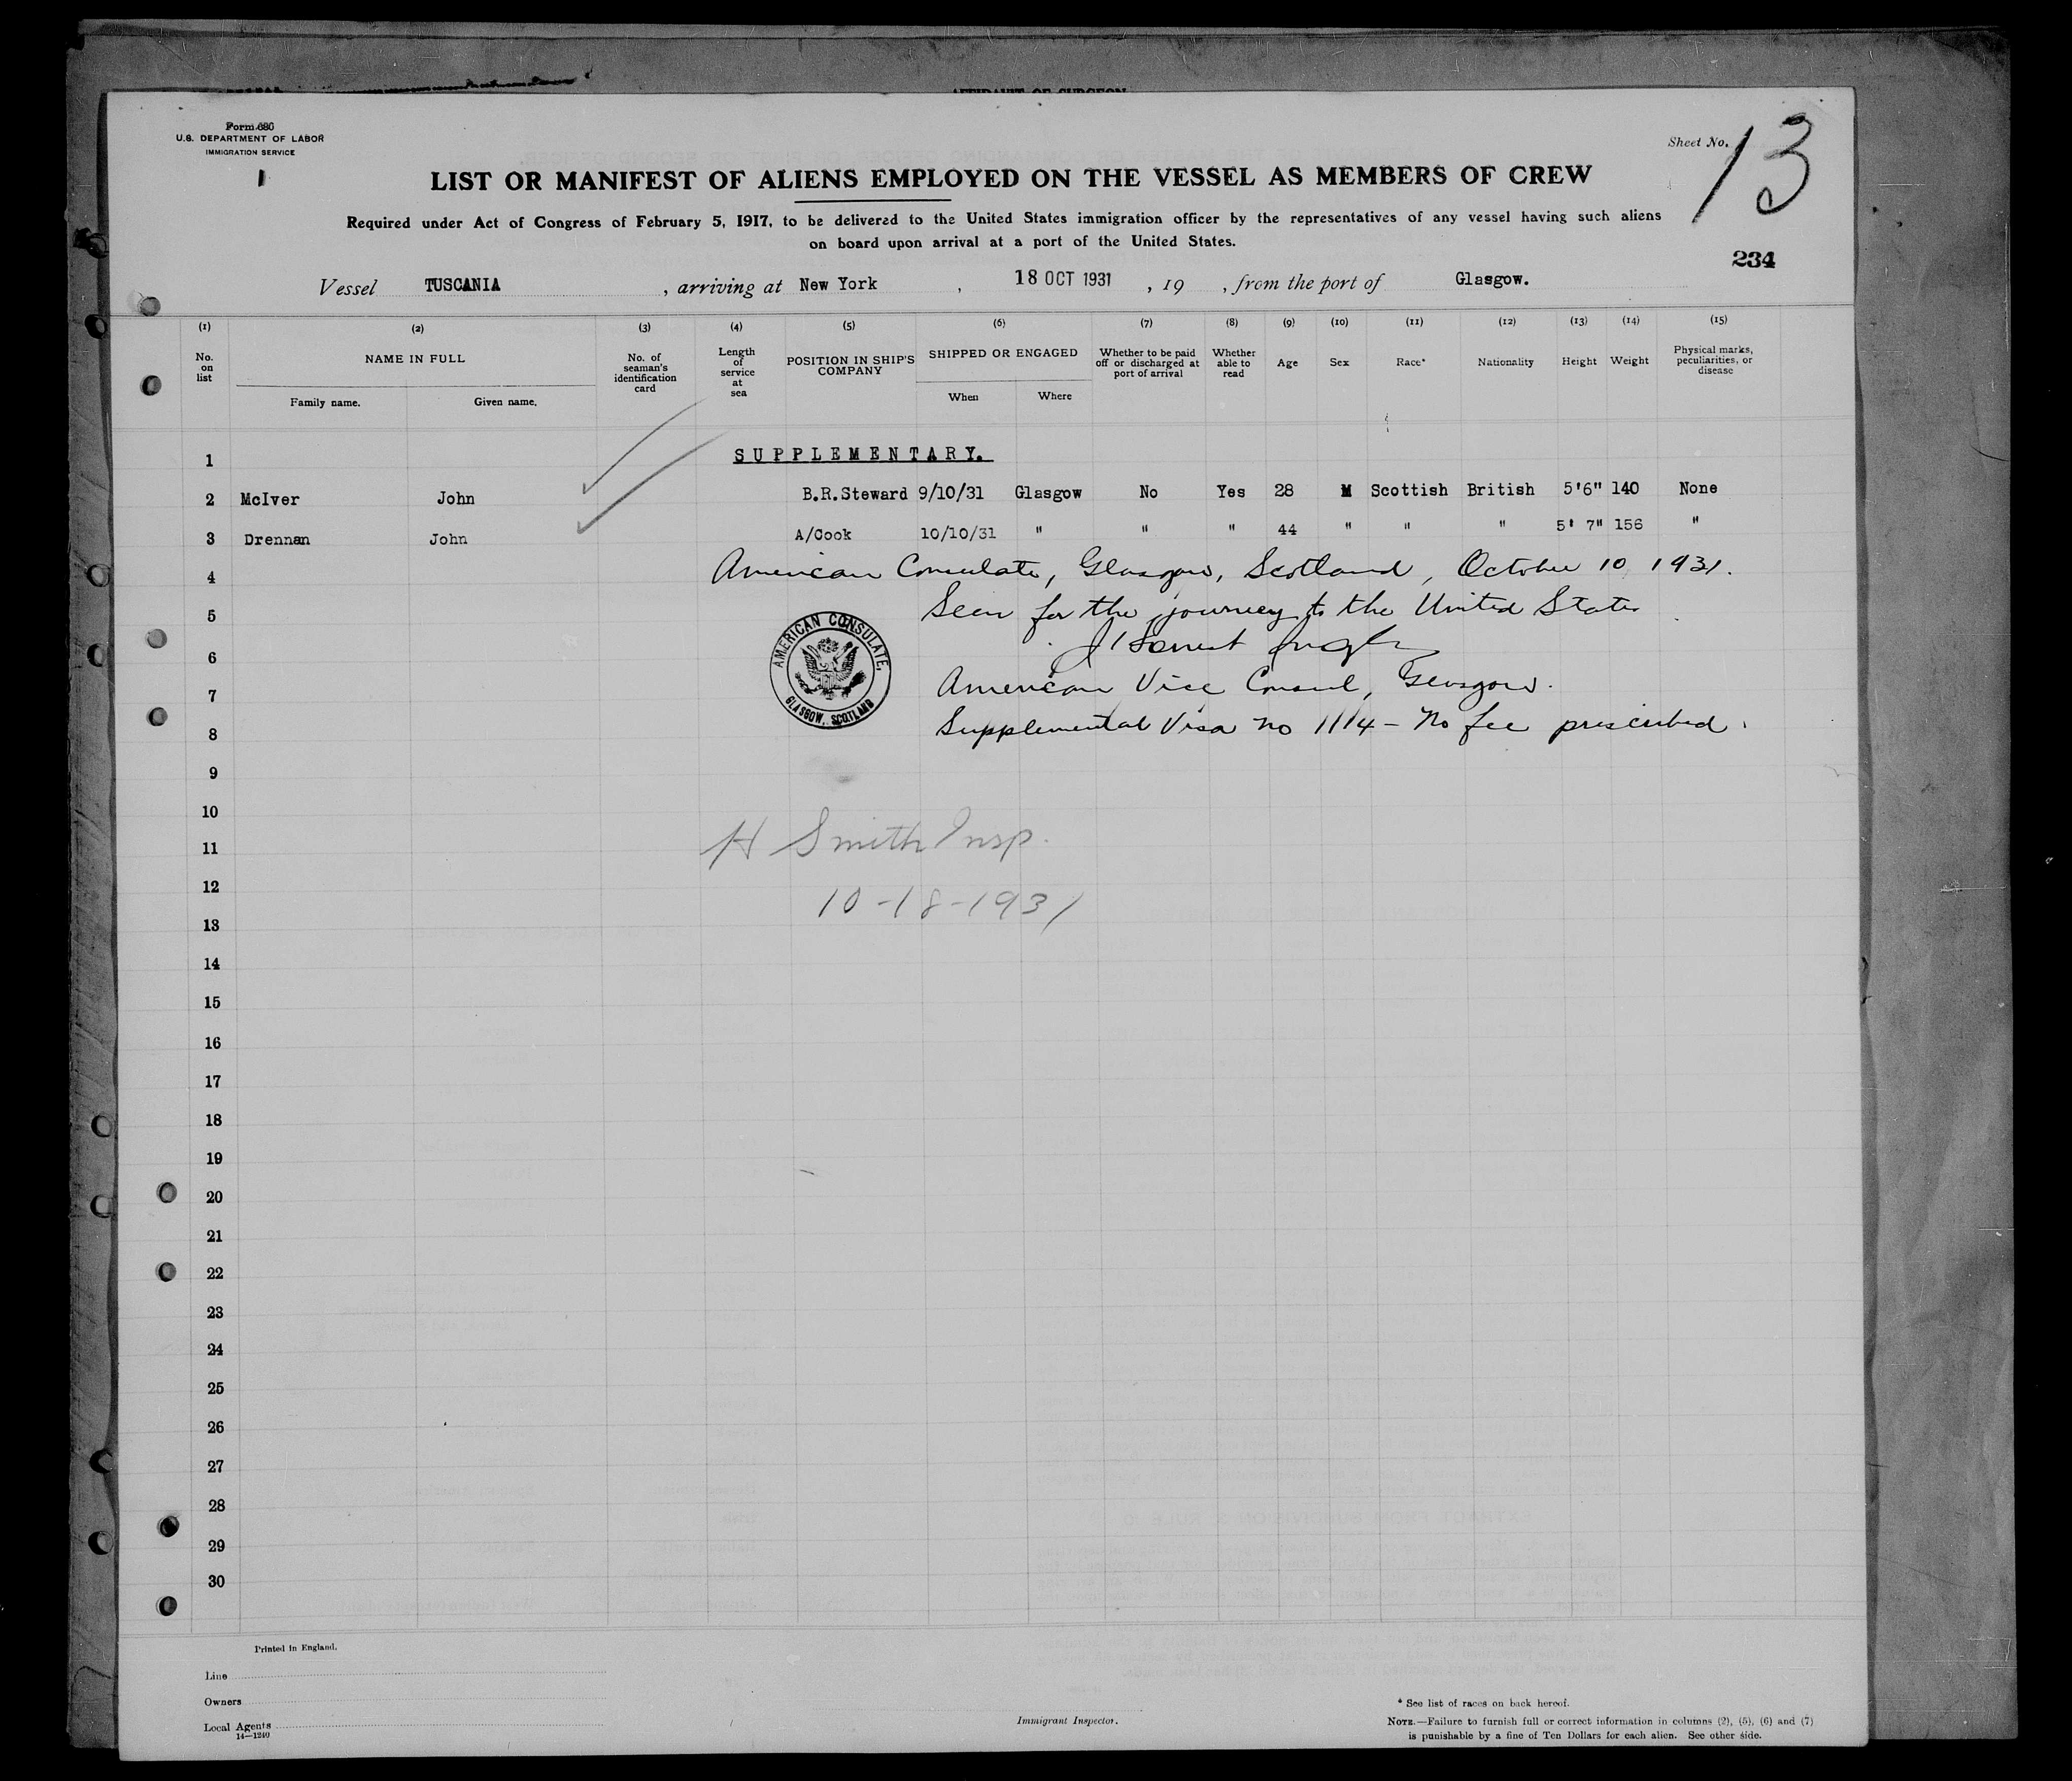 AFFIDAVIT OF SURGEON
Form 680
U.S. DEPARTMENT OF LABOR
IMMIGRATION SERVICE
Sheet No. 13
LIST OR MANIFEST OF ALIENS EMPLOYED ON THE VESSEL AS MEMBERS OF CREW
Required under Act of Congress of February 5, 1917, to be delivered to the United States immigration officer by the representatives of any vessel having such aliens
on board upon arrival at a port of the United States.
234
Vessel TUSCANIA, arriving at New York, 18 OCT 1931, 19 , from the port of Glasgow.
(1) (2) (3) (4) (5) (6) (7) (8) (9) (10) (11) (12) (13) (14) (15)
No. on list NAME IN FULL No. of seaman's identification card Length of service at sea POSITION IN SHIP'S COMPANY SHIPPED OR ENGAGED Whether to be paid off or discharged at port of arrival Whether able to read Age Sex Race* Nationality Height Weight Physical marks, peculiarities, or disease
Family name. Given name. When Where
1 SUPPLEMENTARY.
2 McIver John B.R.Steward 9/10/31 Glasgow No Yes 28 M Scottish British 5'6" 140 None
3 Drennan John A/Cook 10/10/31 " " " 44 " " " 5' 7" 156 "
4 American Consulate, Glasgow, Scotland, October 10 1931.
5 Seen for the journey to the United States
AMERICAN CONSULATE, GLASGOW, SCOTLAND
6
7 American Vice Consul, Glasgow.
8 Supplemental Visa no 1114 - No fee prescribed.
9
10
11 H Smith Insp.
12
10-18-1931
13
14
15
16
17
18
19
20
21
22
23
24
25
26
27
28
29
30
Printed in England.
Line
Owners
Local Agents
14—1240
Immigrant Inspector.
* See list of races on back hereof.
NOTE.—Failure to furnish full or correct information in columns (2), (5), (6) and (7)
is punishable by a fine of Ten Dollars for each alien. See other side.